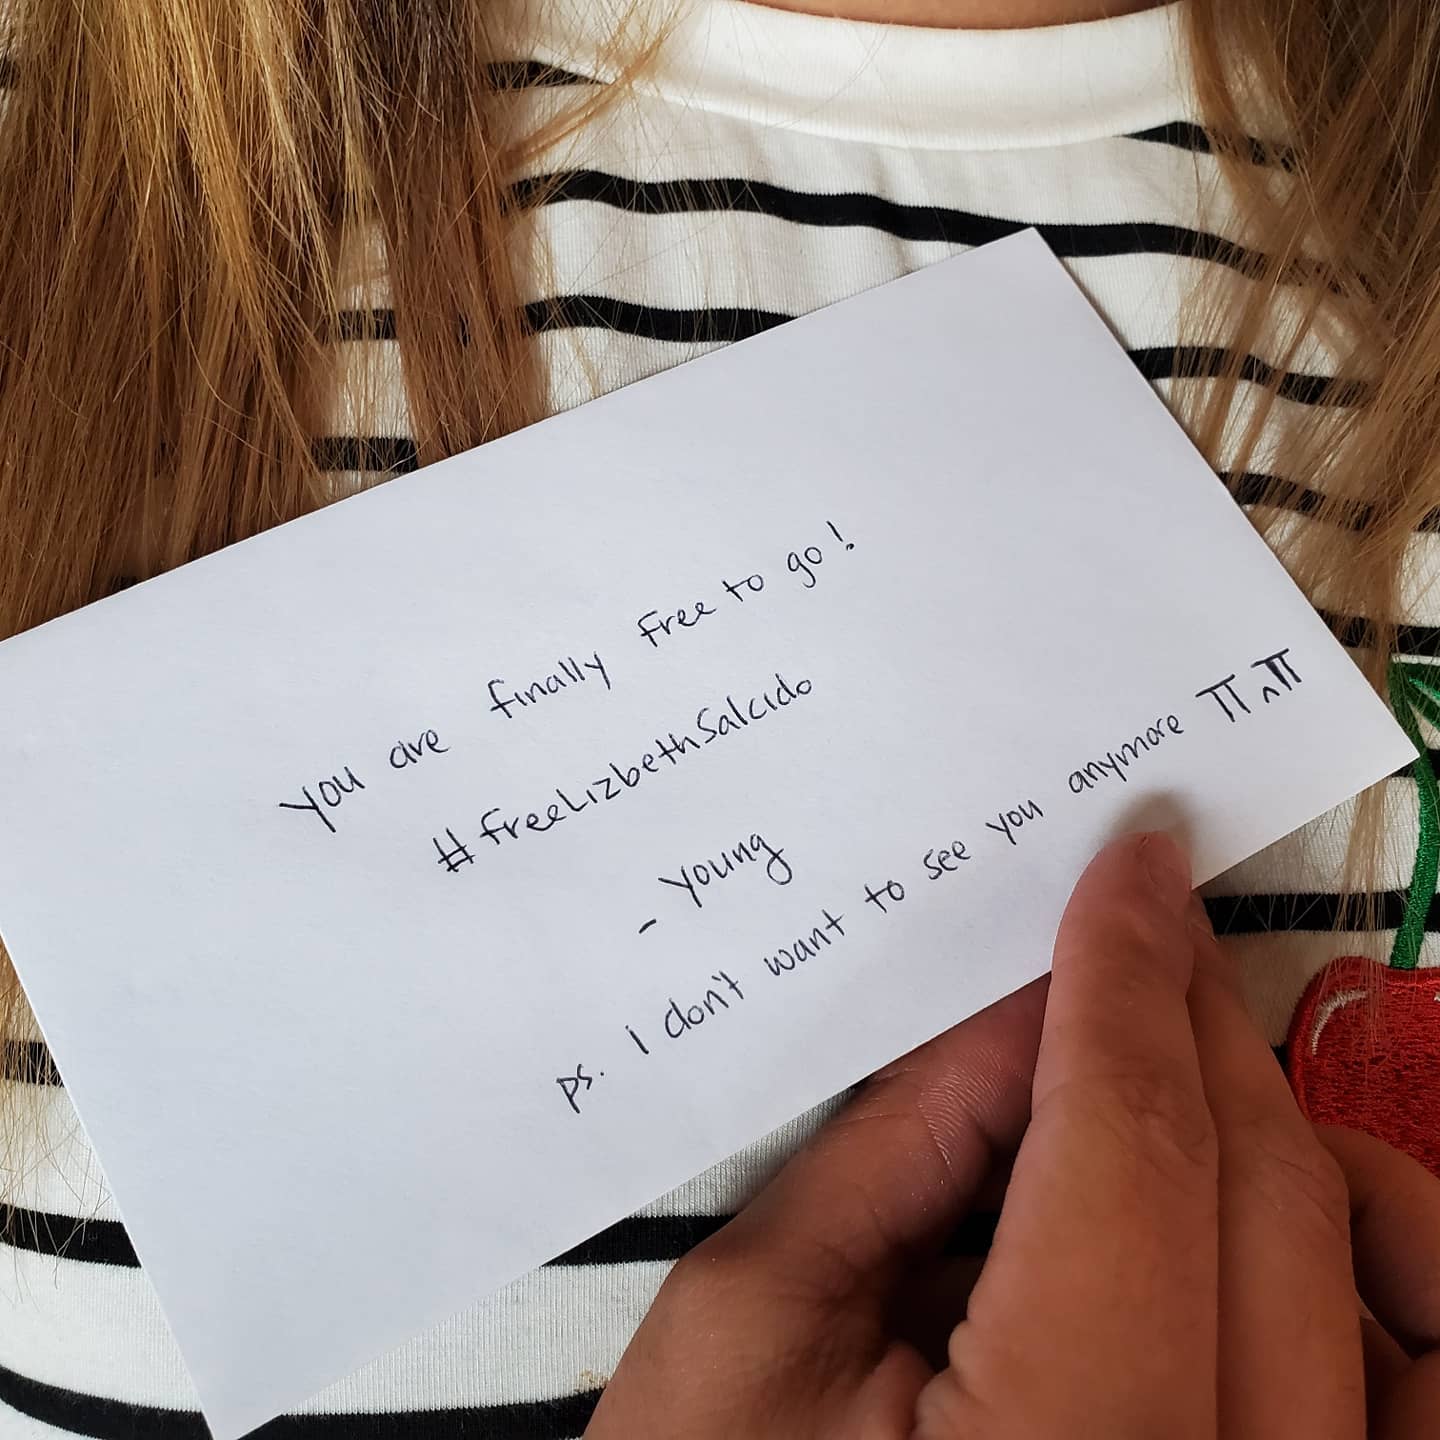 You are finally free to go!
#freeLizbethSalcido
- Young
ps. I don't want to see you anymore ㅠㅅㅠ